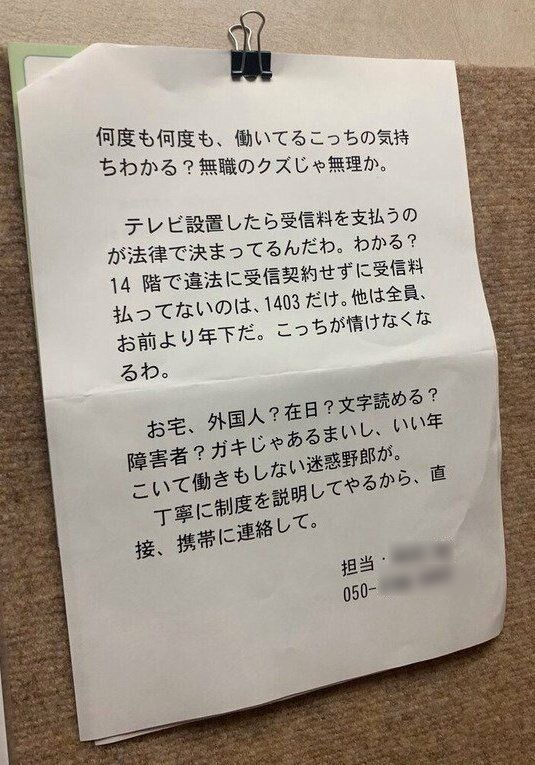 何度も何度も、働いてるこっちの気持
ちわかる？無職のクズじゃ無理か。
テレビ設置したら受信料を支払うの
が法律で決まってるんだわ。わかる？
14 階で違法に受信契約せずに受信料
払ってないのは、1403だけ。他は全員、
お前より年下だ。こっちが情けなくな
るわ。
お宅、外国人？在日？文字読める？
障害者？ガキじゃあるまいし、いい年
こいて働きもしない迷惑野郎が。
丁寧に制度を説明してやるから、直
接、携帯に連絡して。
担当・
050-